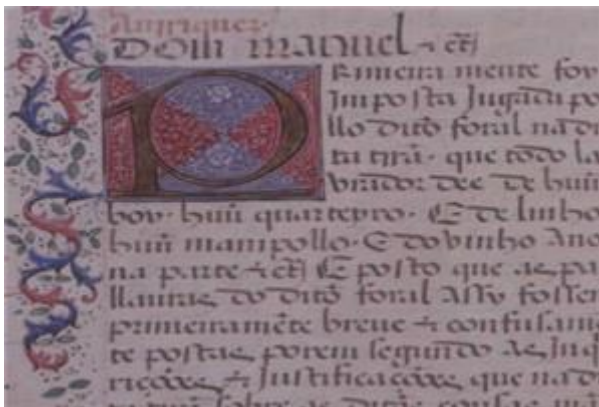 Anrriquez.
Dom manuel ⁊ cẽ
PRimeira mente foy
Imposta Jugada po
llo dito foral na di
ta trrã. que todo la
vrador dee de huũ
boy. huũ quarteyro. E de linho
huũ manipollo. E do vinho Ano
na parte ⁊ cẽ E posto que as pa
llauras do dito foral Assy fossem
primeiramẽte breue ⁊ confusamẽ
te postas porem seguindo as Inq
riçoões ⁊ Justificaçoões que na d
sobre as ditas cousas